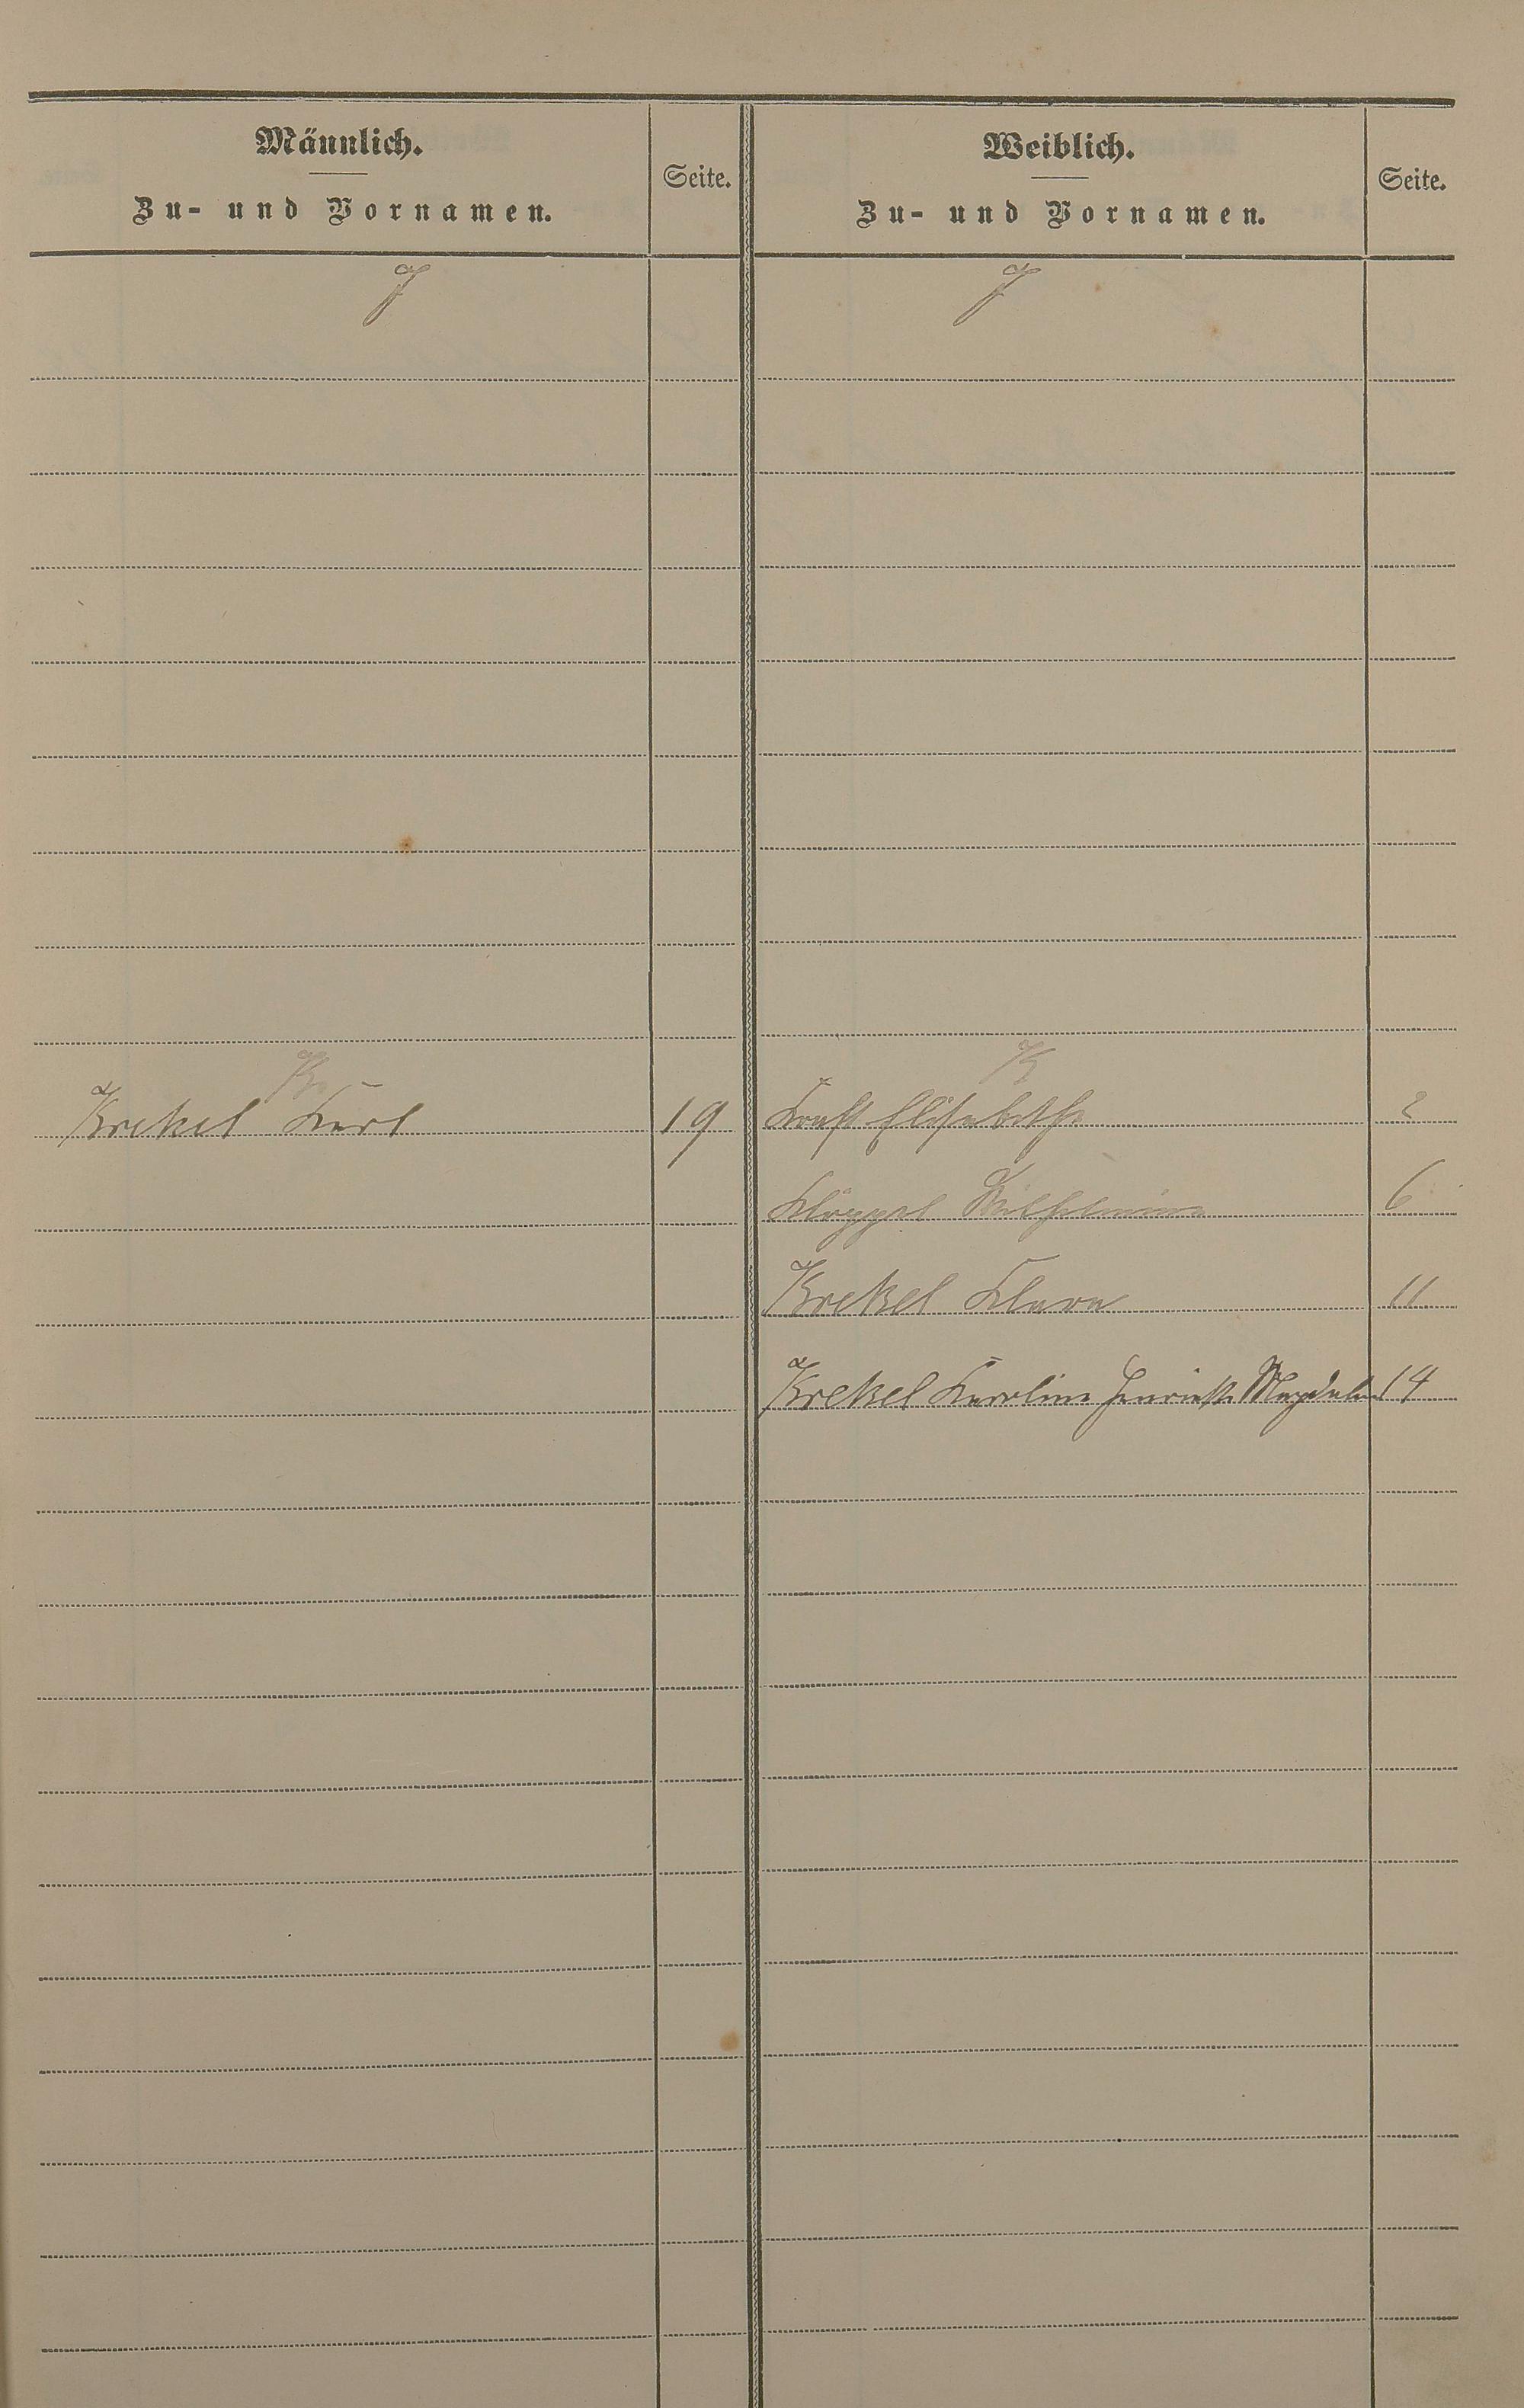 Männlich.
Zu- und Vornamen.
Seite.
Weiblich.
Zu- und Vornamen.
Seite.
J
J
K
K
Krekel Karl 19
Kraft Elisabethe 2
Klöppel Wilhelmine 6
Krekel Klara 11
Krekel Karoline Henriette Magdalene 14